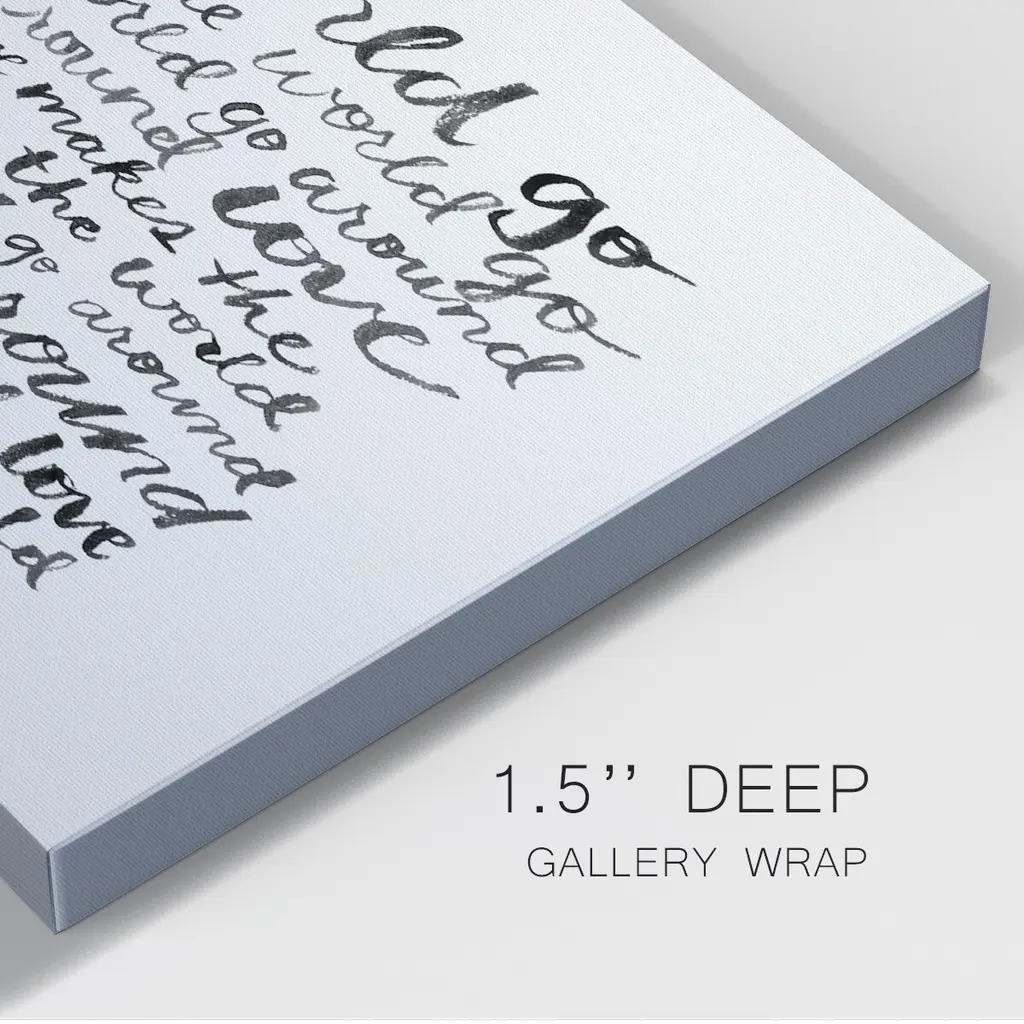 rld go
he world go
orld go around
round love
e makes the
the world
go around
round
love
ld
1.5’’ DEEP
GALLERY WRAP